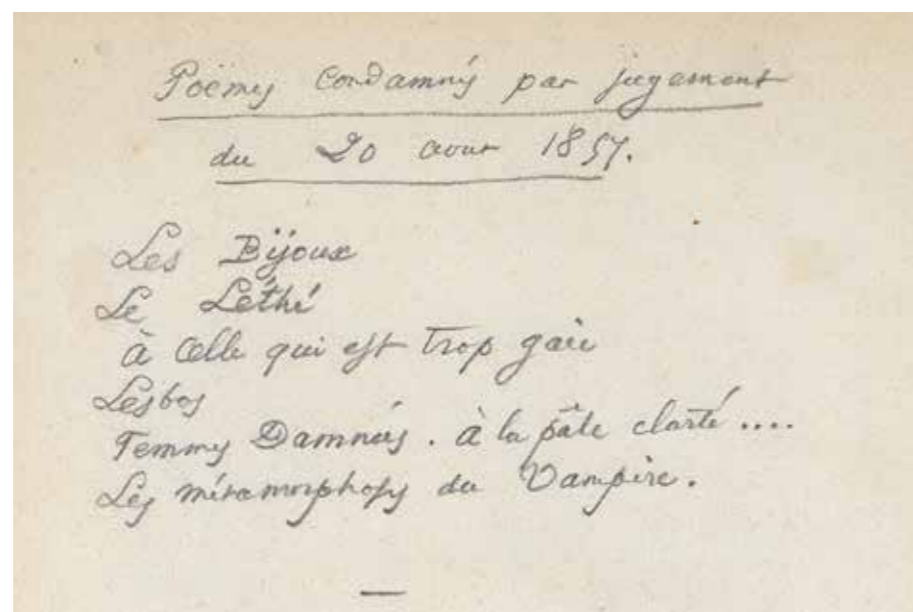 Poëmes Condamnés par jugement
du 20 aout 1857.
Les Bijoux
Le Léthé
à Celle qui est trop gaie
Lesbos
Femmes Damnées. à la pâle clarté ....
Les métamorphoses du Vampire.